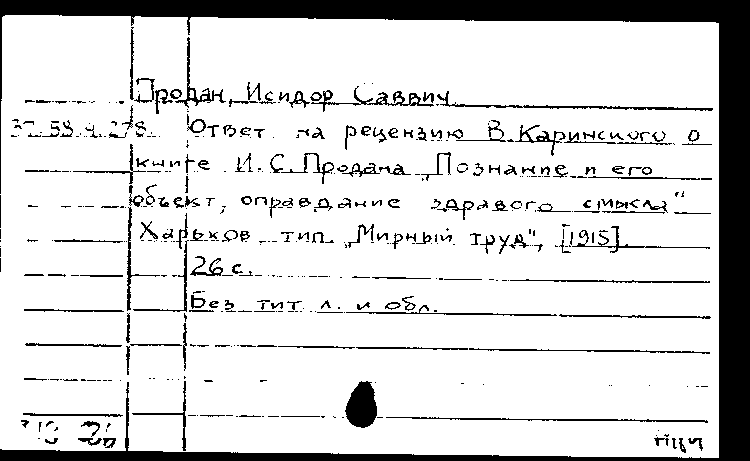 Продан, Исидор Саввич
37.58.4.278. Ответ на рецензию В.Каринского о
книге И.С.Продана „Познание и его
объект, оправдание здравого смысла"
Харьков тип. „Мирный труд", [1915].
26 с.
Без тит л. и обл.